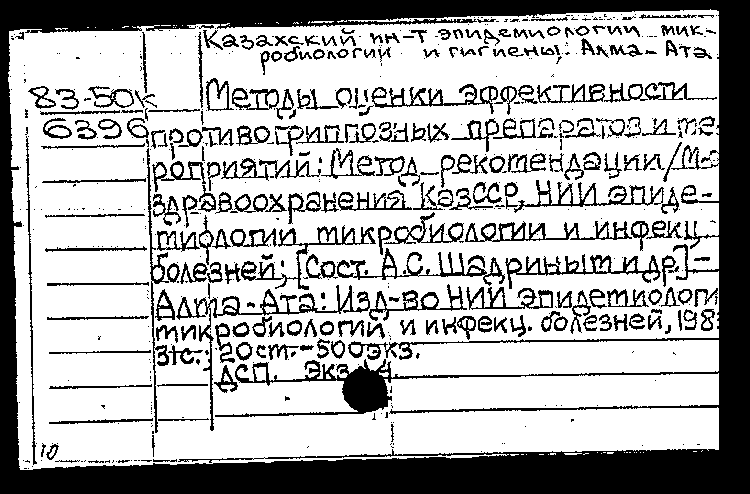 Казахский ин-т эпидемиологии мик-
робиологии и гигиены. Алма-Ата
83-50к Методы оценки эффективности
6396 противогриппозных препаратов и ме-
роприятий: Метод рекомендации/М-во
здравоохранения КазССР, НИИ эпиде-
миологии, микробиологии и инфекц.
болезней; [Сост. А.С. Шадриным и др.]-
Алма-Ата: Изд-во НИИ эпидемиологи
микробиологий и инфекц. болезней, 198
31с.; 20ст.-500экз.
ДСП. Экз.
10